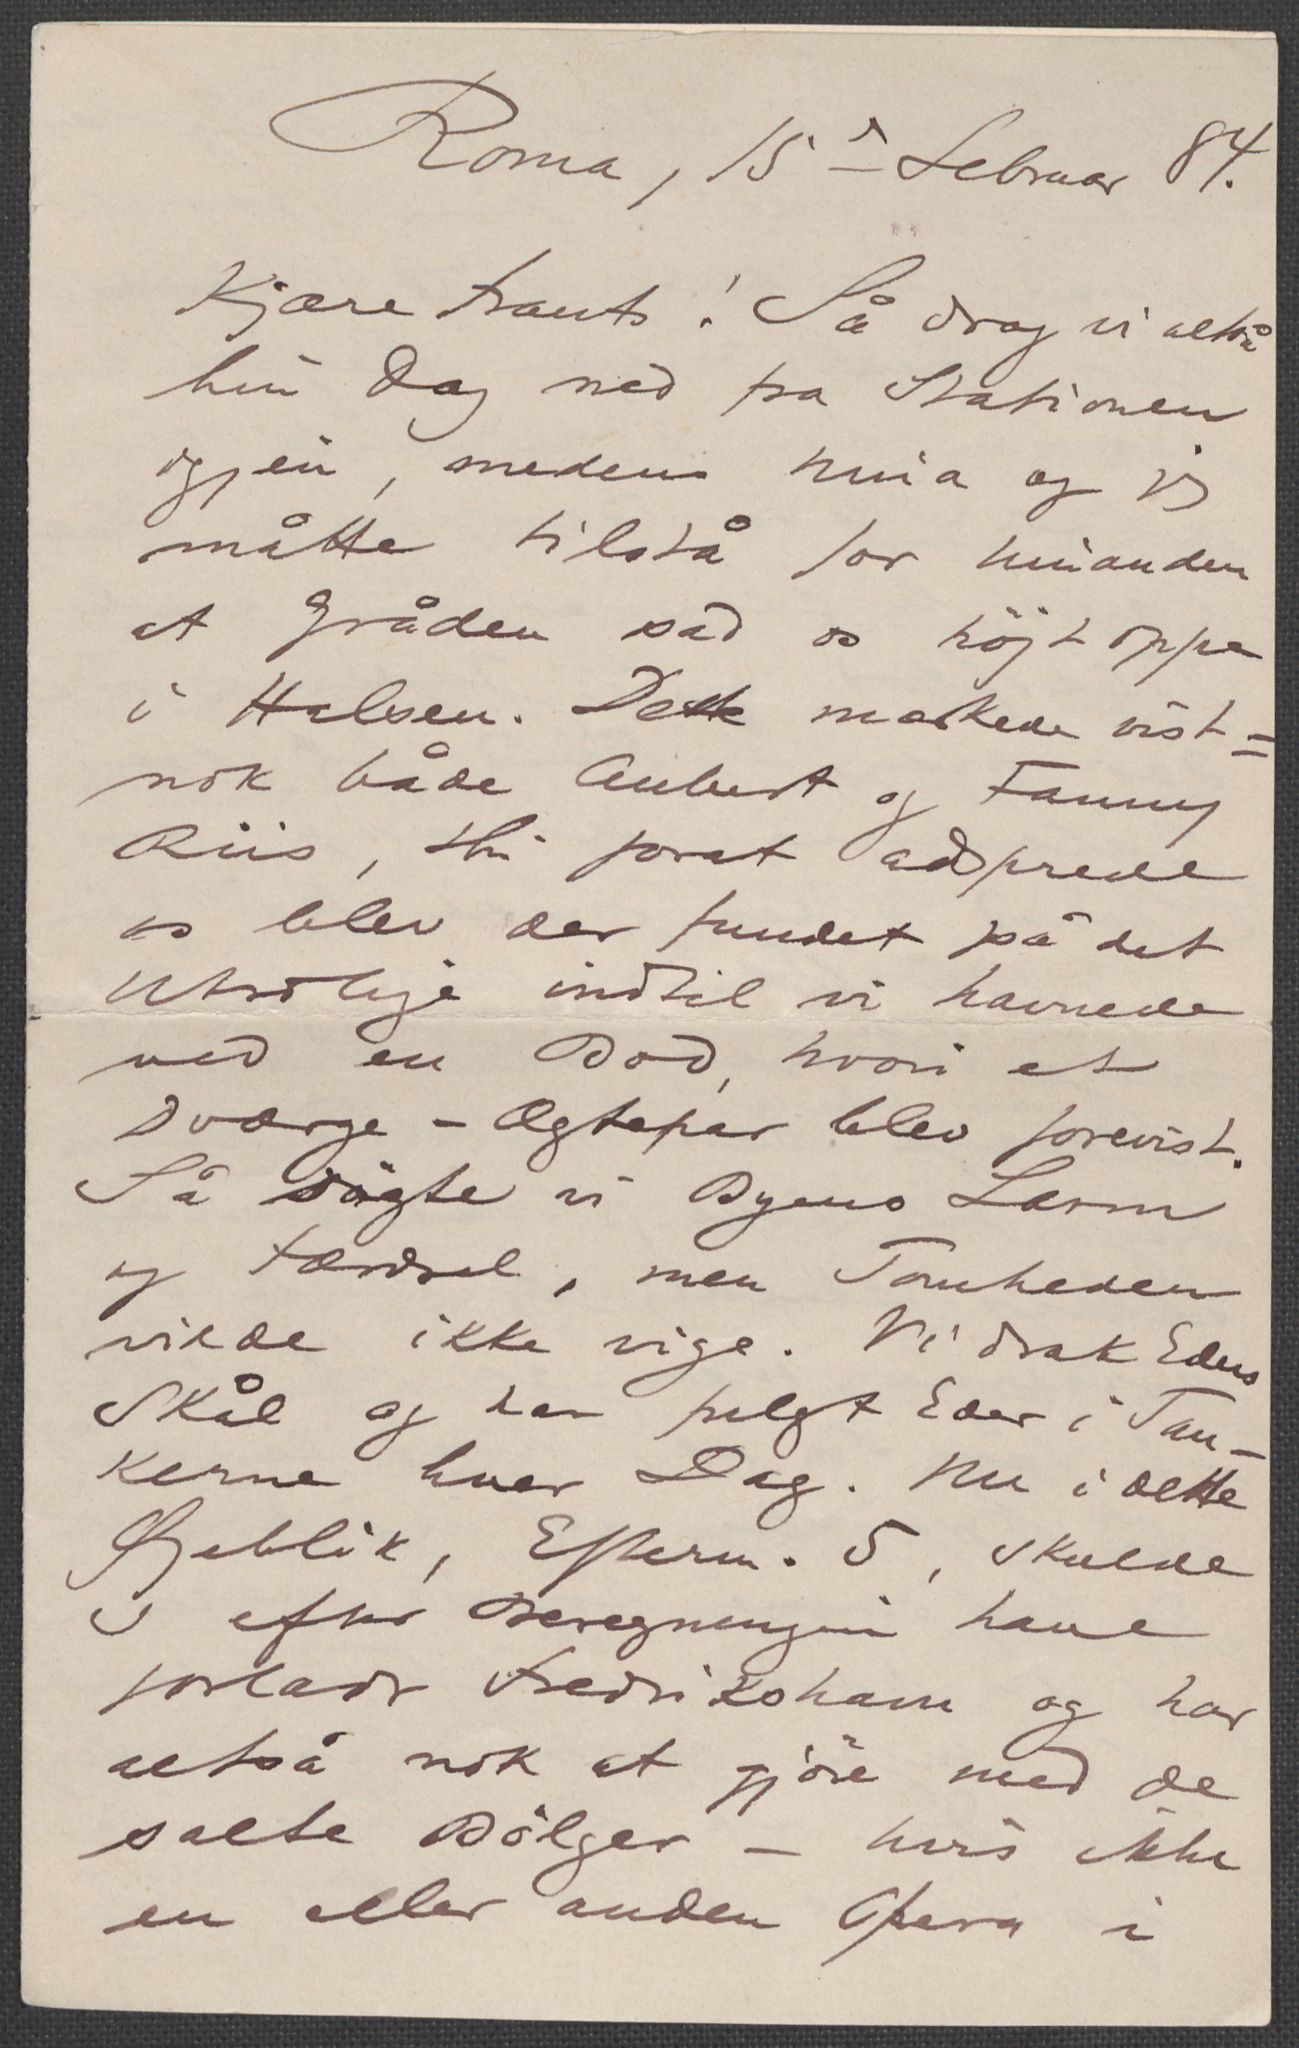 Roma, 15 Februar 84.
Kjære Frants! Så drog vi altså
hin Dag ned fra Stationen
igjen, medens Nina og jeg
måtte tilstå for hinanden
at Gråden sad os höjt oppe
i Halsen. Dette mærkede vist=
nok både Aubert og Fanny
Riis, thi forat adsprede
os blev der fundet på det
utrolige indtil vi havnede
ved en Bod, hvori et
Dværge-Ægtepar blev forevist.
Så sögte vi Byens Larm
og Færdsel, men Tomheden
vilde ikke vige. Vi drak Eders
Skål og har fulgt Eder i Tan-
kerne hver Dag. Nu i dette
Øjeblik, Efterm. 5, skulde
I efter Beregningen have
forladt Fredrikshavn og har
altså nok at gjöre med de
salte Bölger – hvis ikke
en eller anden Opera i